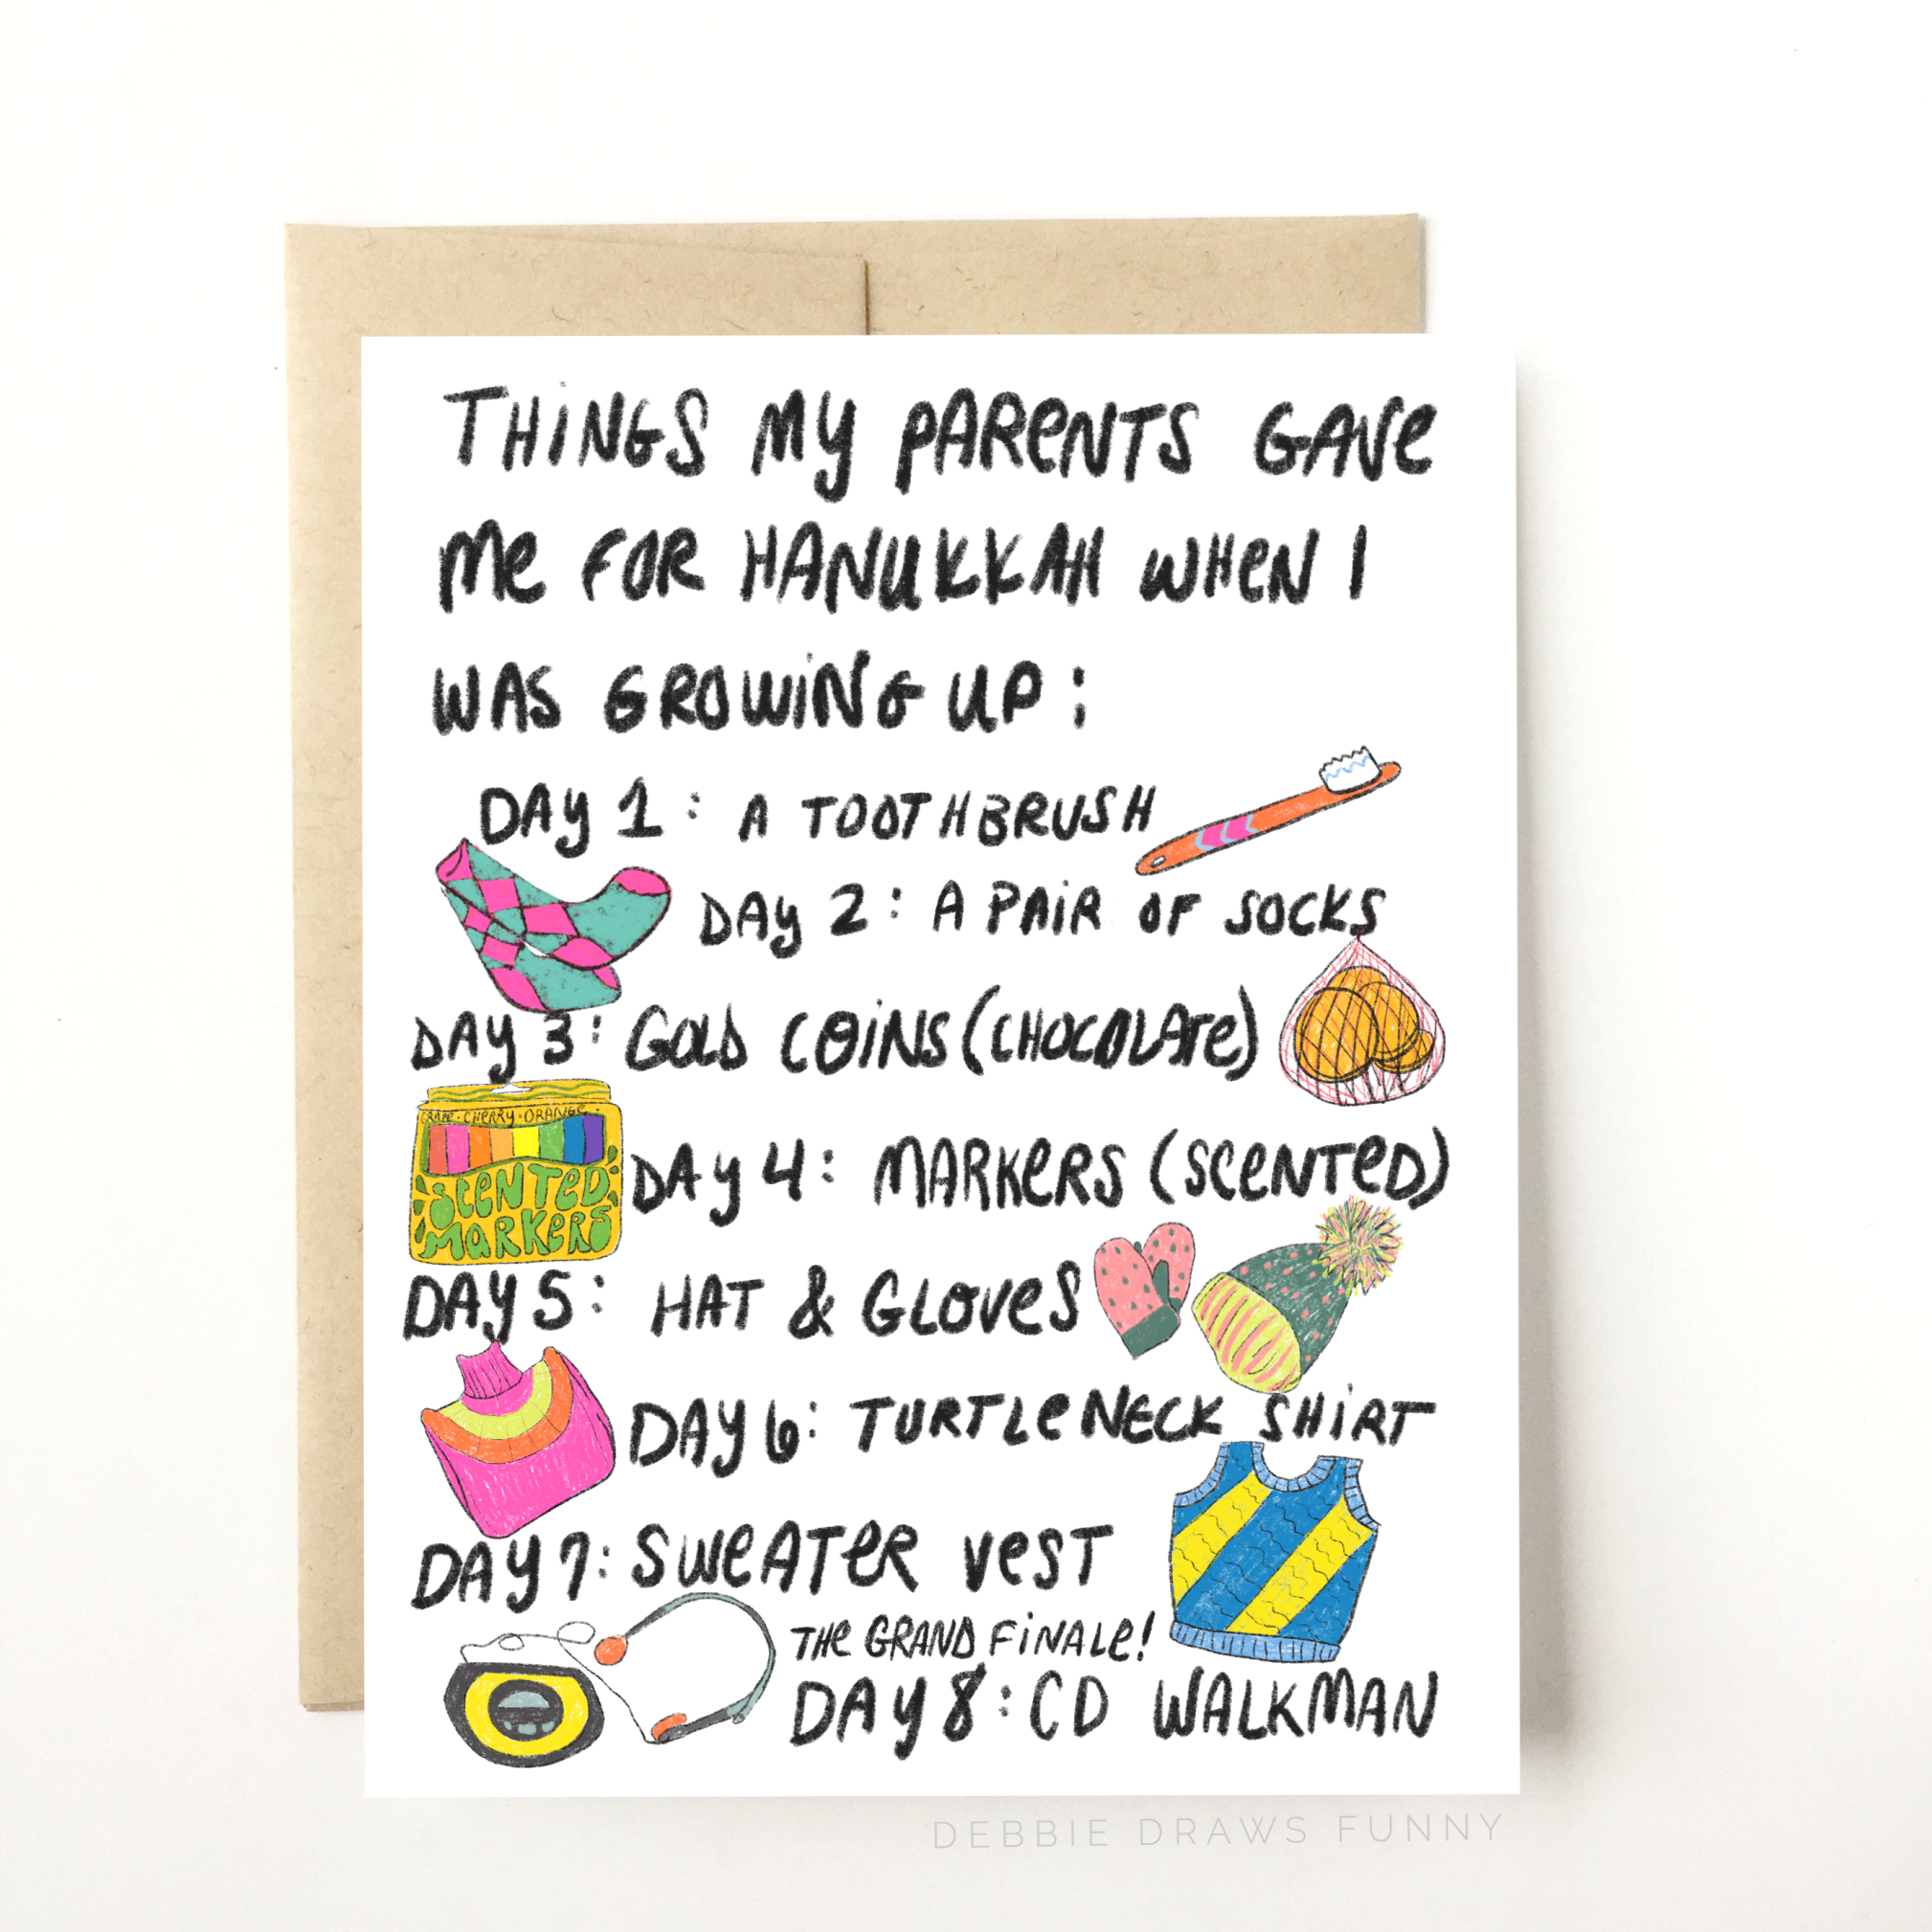 THINGS MY PARENTS GAVE
ME FOR HANUKKAH WHEN I
WAS GROWING UP:
DAY 1: A TOOTHBRUSH
DAY 2: A PAIR OF SOCKS
DAY 3: GOLD COINS (CHOCOLATE)
GRAPE · CHERRY · ORANGE ·
SCENTED
MARKERS
DAY 4: MARKERS (SCENTED)
DAY 5: HAT & GLOVES
DAY 6: TURTLENECK SHIRT
DAY 7: SWEATER VEST
THE GRAND FINALE!
DAY 8: CD WALKMAN
DEBBIE DRAWS FUNNY